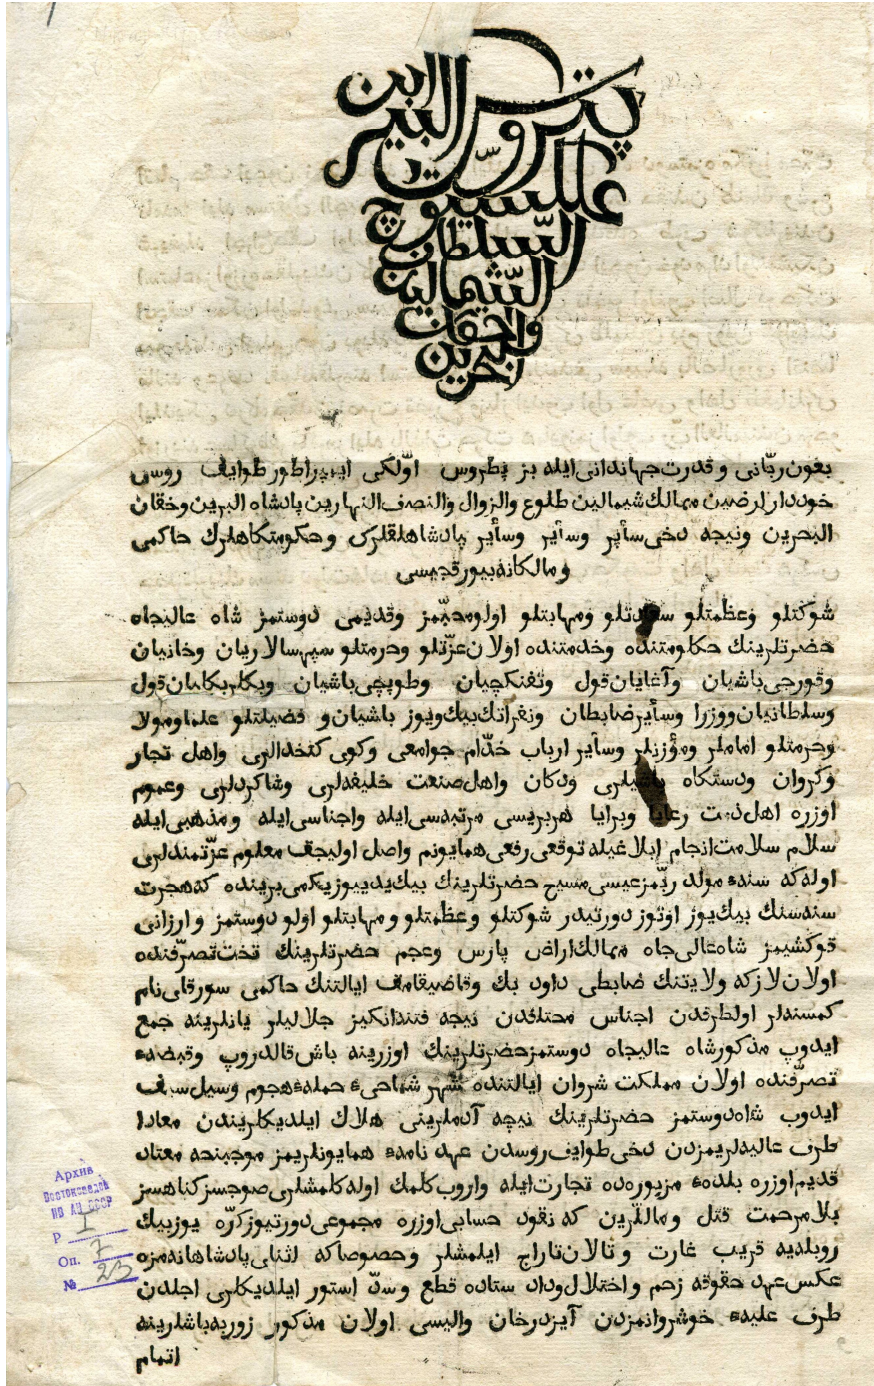 پتروس البير ابن
علكسيوچ
السلطان
الشماليين
واخقان
البحرين
بعون ربّانى و قدرت جهاندانى ايله بز پطروس اوّلكى ايمپراطور طوايف روس
خوددار ارضين ممالك شيمالين طلوع والزوال والنصف النهارين پادشاه البرين وخقان
البحرين ونيجه دخى سأير وسأير وسأير پادشاهلقلرك وحكومتكاهلرك حاكمى
ومالكانه بيورقجيسى
شوكتلو وعظمتلو سعادتلو ومهابتلو اولو محبّمز وقديمى دوستمز شاه عاليجاه
حضرتلرينك حكاومتنده وخدمتنده اولان عزّتلو وحرمتلو سپهسالاريان وخانيان
وقورجى باشيان وآغايان قول وتفنكچيان وطوپچى باشيان وبكلربكايان قول
وسلطانيان ووزرا وسأير ضابطان ونفرانك بيك ويوز باشيان و فضيلتلو علما ومولا
وحرمتلو اماملر ومؤزنلر وسأير ارباب خدّام جوامعى وكوى كتخدالرى واهل تجار
وكروان ودستكاه ودكان واهل صنعت خليفه لرى وشاكردلرى وعموم
اوزره اهل ذمت رعايا وبرايا هربريسى مرتبه سى ايله واجناسى ايله ومذهبى ايله
سلام سلامت انجام ابلاغيله توقعى رفعى همايونم واصل اوليجف معلوم عزّتمندلرى
اوله كه سنهء مولد ربّمز عيسى مسيح حضرتلرينك بيك يديوز يكمى برينده كه هجرت
سنه سنك بيك يوز اوتوز دورتيدر شوكتلو وعظمتلو ومهابتلو اولو دوستمز وارزانى
قوكشيمز شاه عالى جاه ممالك اراض پارس وعجم حضرتلرينك تخت تصرّفنده
اولان لازكه ولايتنك ضابطى داود بك وقاضيقامف ايالتنك حاكمى سورقاى نام
كمسنه لر اولطرفدن اجناس مختلفدن نيجه فتنه انكيز جلاليلر يانلرينه جمع
ايدوپ مذكور شاه عاليجاه دوستمز حضرتلرينك اوزرينه باش قالدروپ وقبضهء
تصرّفنده اولان مملكت شروان ايالتنده شهر شماخىء حملهء هجوم وسيل سيف
ايدوب شاه دوستمز حضرتلرينك نيچه آدملرينى هلاك ايلديكلريندن معادا
طرف عاليه لريمزدن دخى طوايف روسدن عهد نامهء همايونلريمز موجبنجه معتاد
قديم اوزره بلدهء مزبوره ده تجارت ايله واروب كلمك اوله كلمشلرى صوجسز كناهسز
بلا مرحمت قتل ومالّرين كه نقود حسابى اوزره مجموعى دورتيوز كرّه يوز بيك
روبله يه قريب غارت وتالان تاراج ايلمشلر وحصوصا كه لثناى پادشاهانه مزه
عكس عهد حقوقه زحم واختلال وداد ستاده قطع وسدّ استور ايلديكلرى اجلدن
طرف عليهء خوشروانمزدن آيزدرخان واليسى اولان مذكور زوربه باشلرينه
اتمام
Архив
Востоковедов
ИВ АН СССР
Р I
Оп. 7
№ 23